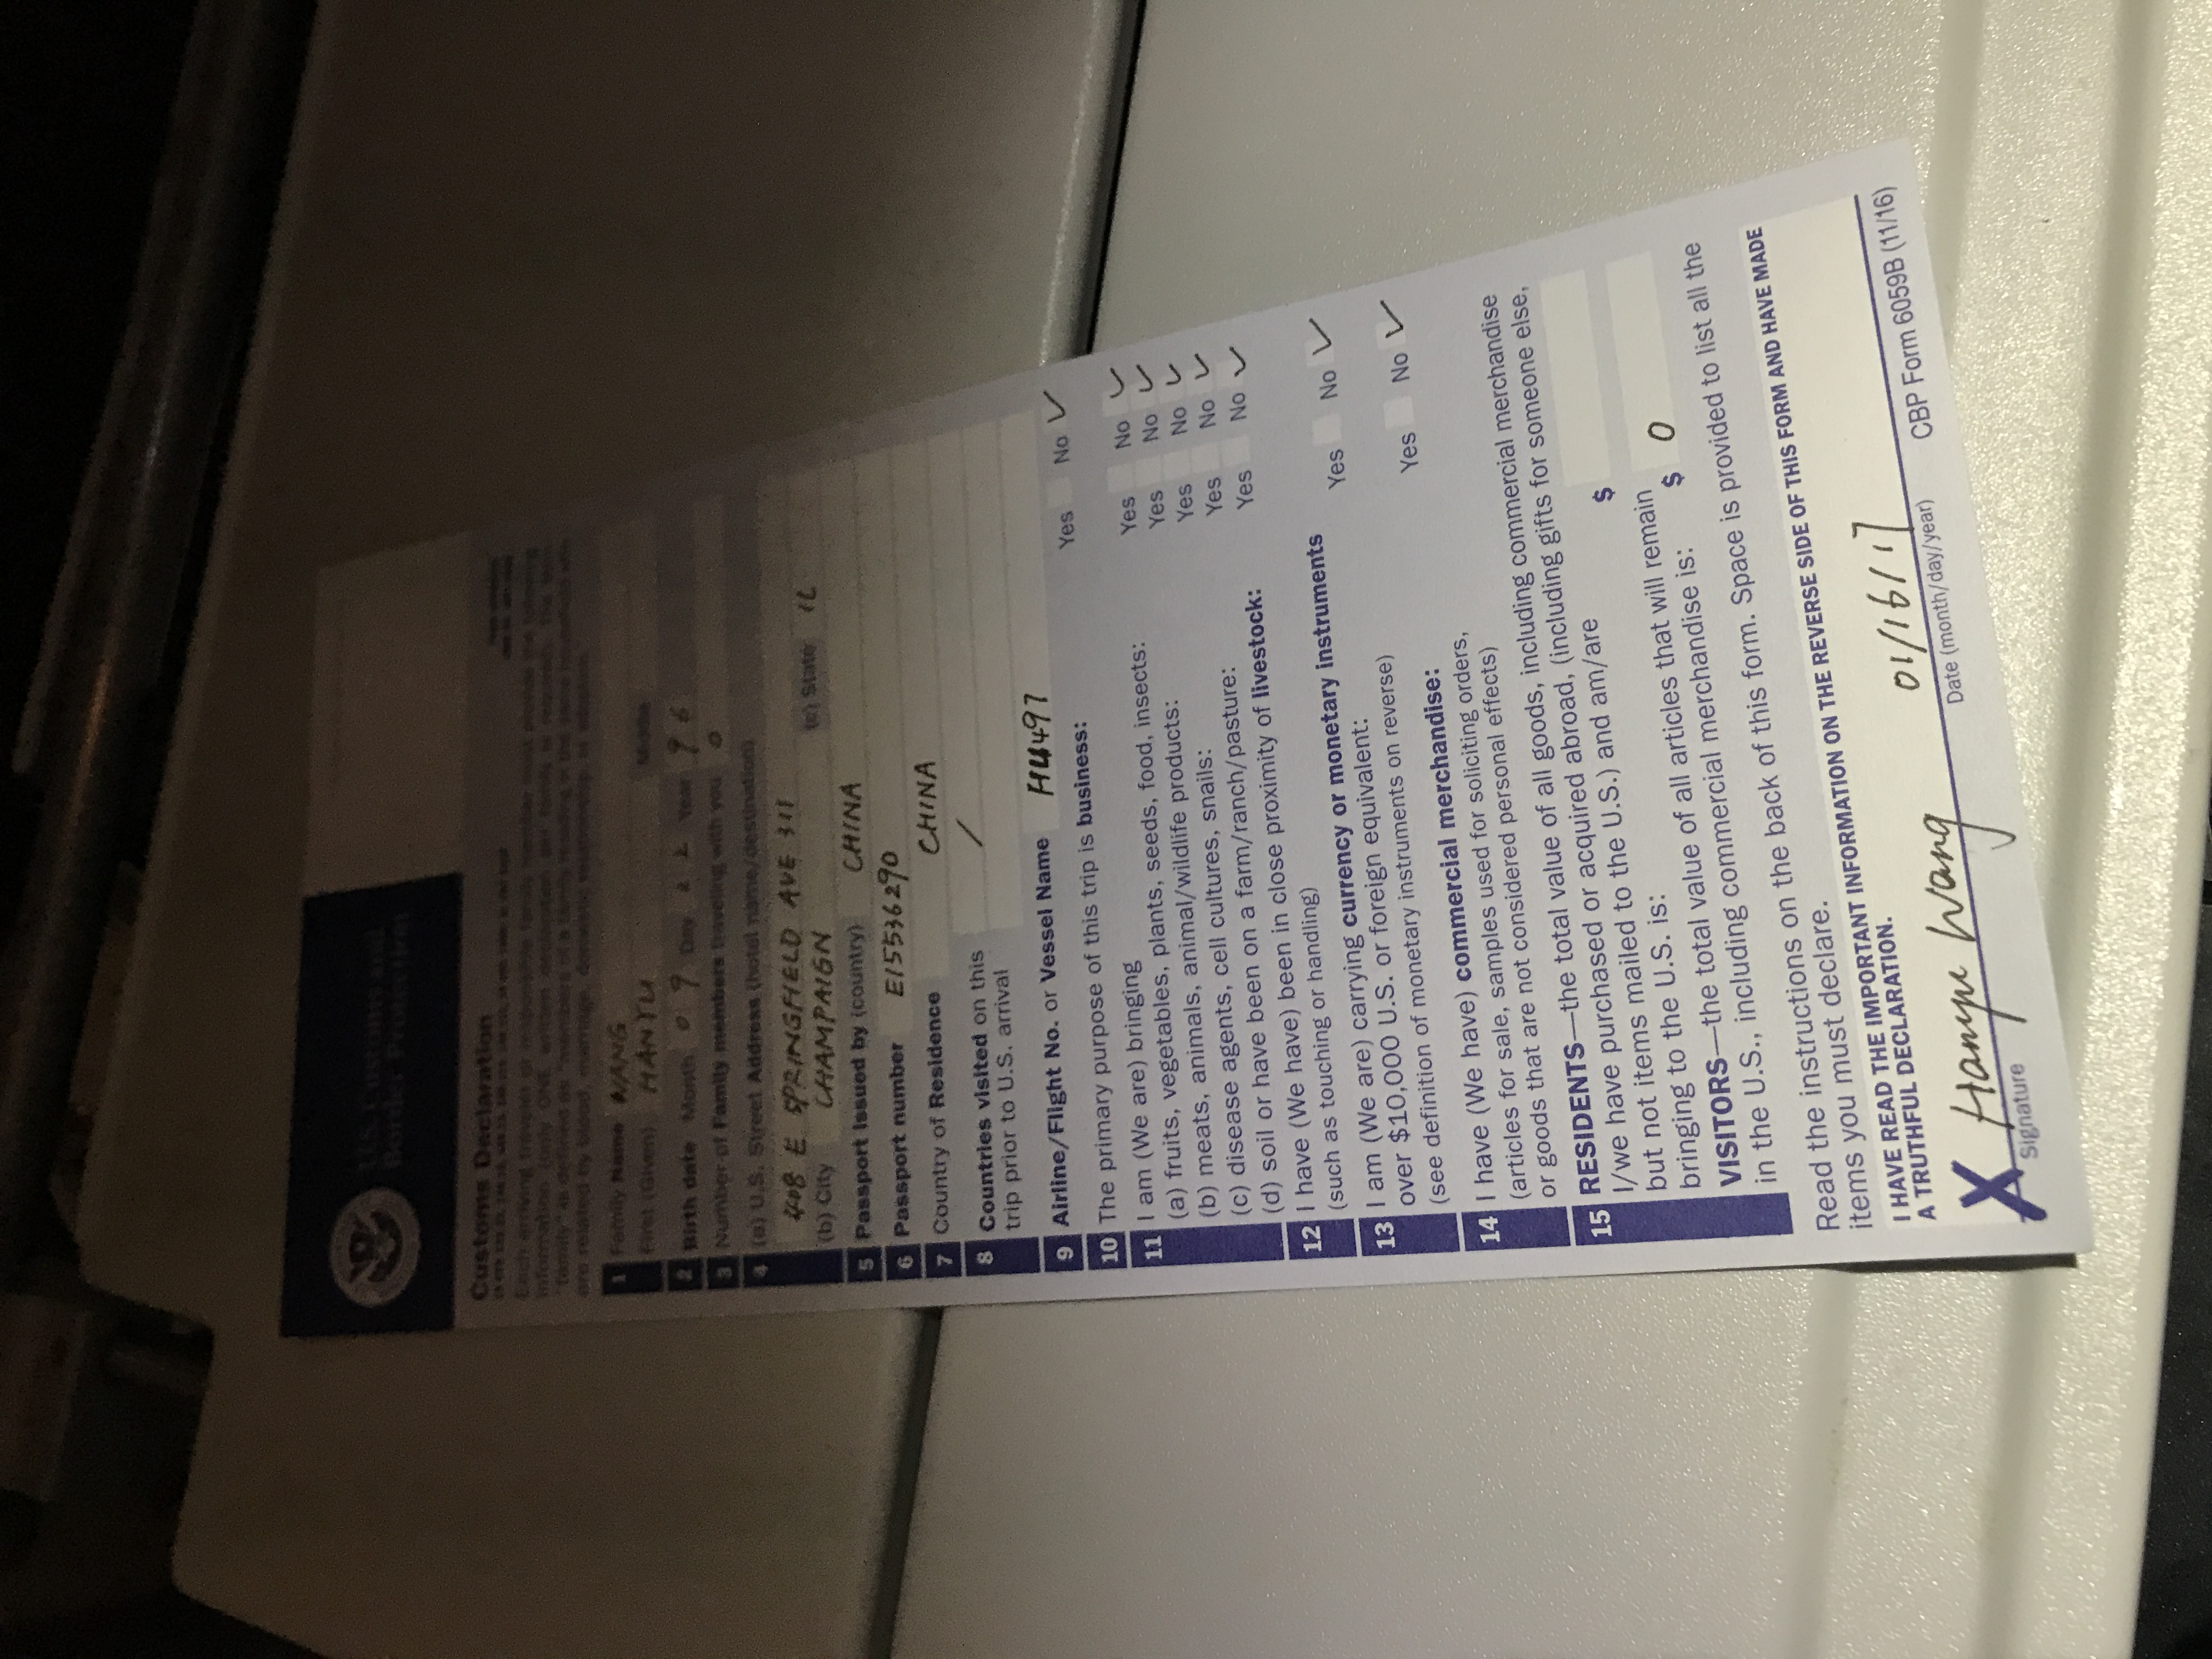 U.S. Customs and
Border Protection
Customs Declaration
Each arriving traveler or responsible family member must provide the following
information (only ONE written declaration per family is required). The term
"family" is defined as "members of a family residing in the same household who
are related by blood, marriage, domestic relationship, or adoption."
1 Family Name WANG
First (Given) HANYU Middle
2 Birth date Month 09 Day 22 Year 96
3 Number of Family members traveling with you 0
4 (a) U.S. Street Address (hotel name/destination)
408 E SPRINGFIELD AVE 311
(b) City CHAMPAIGN (c) State IL
5 Passport issued by (country) CHINA
6 Passport number E15536290
7 Country of Residence CHINA
8 Countries visited on this /
trip prior to U.S. arrival
9 Airline/Flight No. or Vessel Name HU497
10 The primary purpose of this trip is business: Yes No ✓
11 I am (We are) bringing
(a) fruits, vegetables, plants, seeds, food, insects: Yes No ✓
(b) meats, animals, animal/wildlife products: Yes No ✓
(c) disease agents, cell cultures, snails: Yes No ✓
(d) soil or have been on a farm/ranch/pasture: Yes No ✓
12 I have (We have) been in close proximity of livestock: Yes No ✓
(such as touching or handling)
13 I am (We are) carrying currency or monetary instruments Yes No ✓
over $10,000 U.S. or foreign equivalent:
(see definition of monetary instruments on reverse)
14 I have (We have) commercial merchandise: Yes No ✓
(articles for sale, samples used for soliciting orders,
or goods that are not considered personal effects)
15 RESIDENTS—the total value of all goods, including commercial merchandise
I/we have purchased or acquired abroad, (including gifts for someone else,
but not items mailed to the U.S.) and am/are
bringing to the U.S. is: $
VISITORS—the total value of all articles that will remain
in the U.S., including commercial merchandise is: $ 0
Read the instructions on the back of this form. Space is provided to list all the
items you must declare.
I HAVE READ THE IMPORTANT INFORMATION ON THE REVERSE SIDE OF THIS FORM AND HAVE MADE
A TRUTHFUL DECLARATION.
X Hanyu Wang 01/16/17
Signature Date (month/day/year) CBP Form 6059B (11/16)